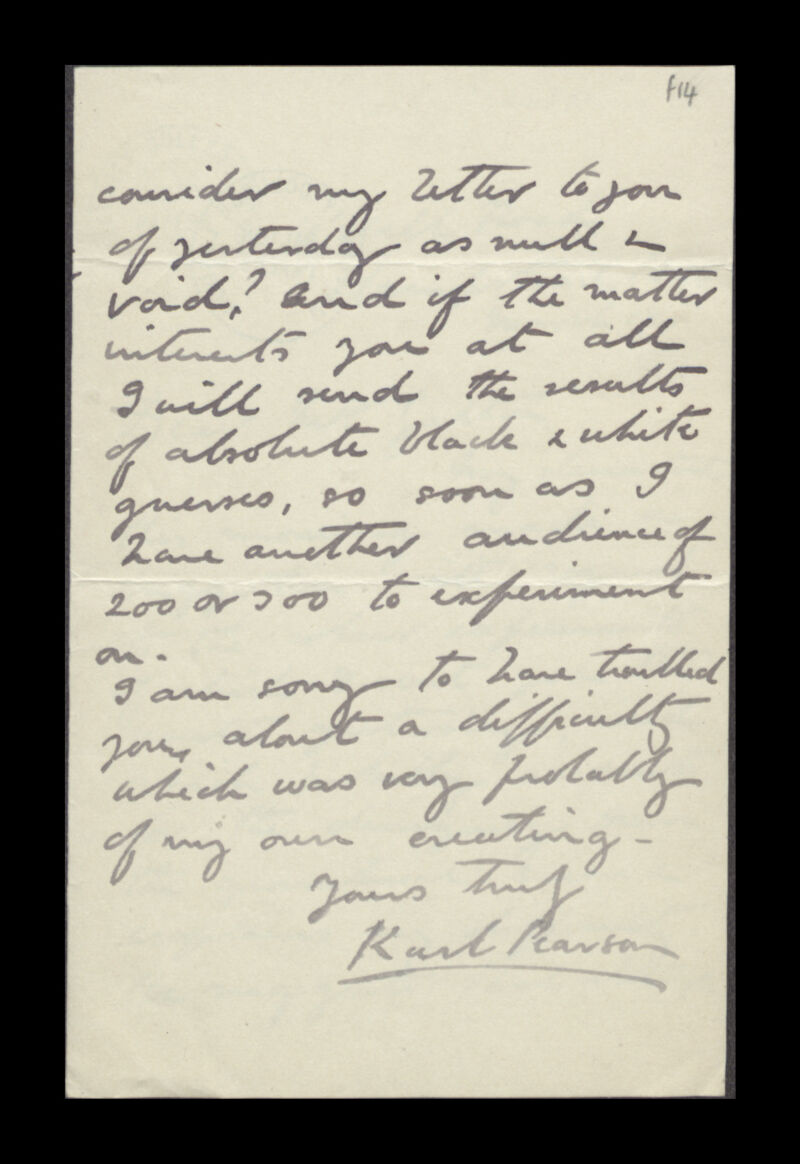 f14
consider my letter to you
of yesterday as null &
void,? And if the matter
interests you at all
I will send the results
of absolute black & white
guesses, so soon as I
have another audience of
200 or 300 to experiment
on.
I am sorry to have troubled
you, about a difficulty
which was very probably
of my own creating –
Yours truly
Karl Pearson